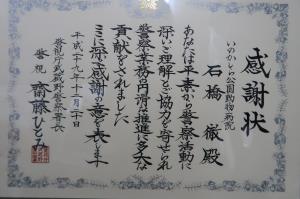 感謝状
いのかしら公園動物病院
石橋徹殿
あなたは平素から警察活動に
深いご理解とご協力を寄せられ
警察業務の円滑な推進に多大な
貢献をされました
ここに深く感謝の意を表します
平成二十九年十二月二十日
警視庁武蔵野警察署長
警視 齋藤ひとみ